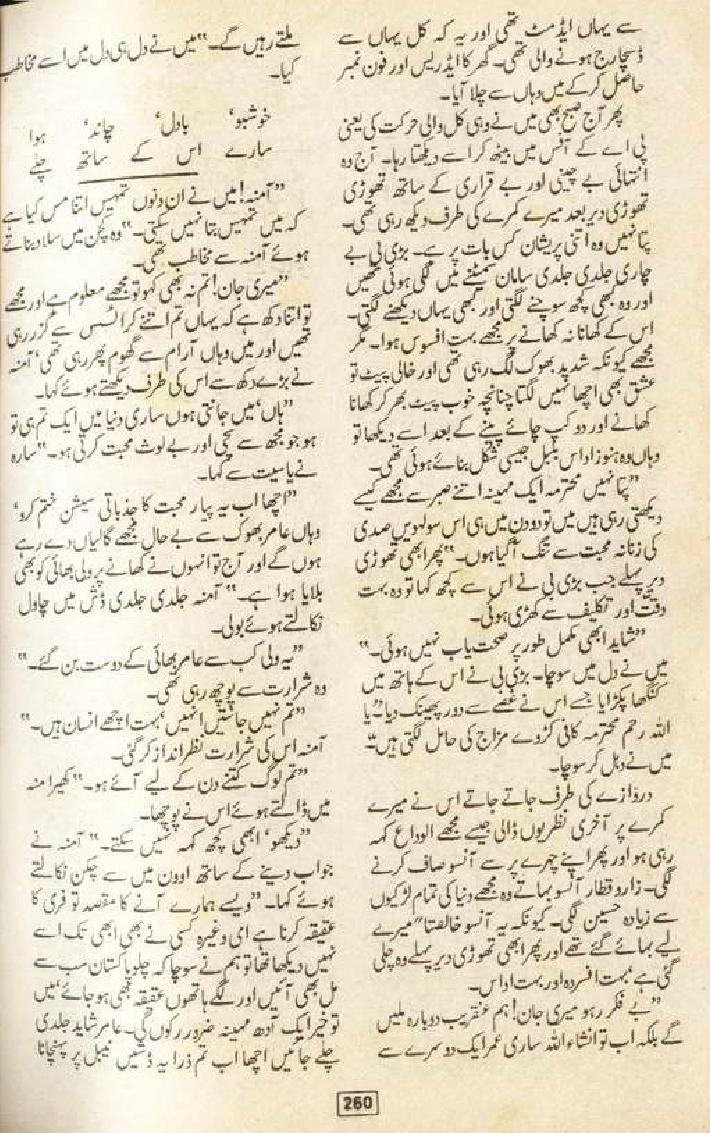 سے یہاں ایڈمٹ تھی اور یہ کہ کل یہاں سے
ڈسچارج ہونے والی تھی۔ گھر کا ایڈریس اور فون نمبر
حاصل کرکے میں وہاں سے چلا آیا۔
پھر آج صبح بھی میں نے وہی کل والی حرکت کی یعنی
پی اے کے آفس میں بیٹھ کر اسے دیکھتا رہا۔ آج وہ
انتہائی بے چینی اور بے قراری کے ساتھ تھوڑی
تھوڑی دیر بعد میرے کمرے کی طرف دیکھ رہی تھی۔
پتا نہیں وہ اتنی پریشان کس بات پر ہے۔ بڑی بی بے
چاری جلدی جلدی سامان سمیٹنے میں لگی ہوئی تھیں
اور وہ بھی کچھ سوچنے لگتی اور کبھی یہاں دیکھنے لگتی۔
اس کے کھانا نہ کھانے پر مجھے بہت افسوس ہوا۔ مگر
مجھے کیونکہ شدید بھوک لگ رہی تھی اور خالی پیٹ تو
عشق بھی اچھا نہیں لگتا چنانچہ خوب پیٹ بھر کر کھانا
کھانے اور دو کپ چائے پینے کے بعد اسے دیکھا تو
وہاں وہ ہنوز اداس بلبل جیسی شکل بنائے ہوئی تھی۔
"پتا نہیں محترمہ ایک مہینہ اتنے صبر سے مجھے کیسے
دیکھتی رہی ہیں میں تو دو دن میں ہی اس سولہویں صدی
کی زنانہ محبت سے تنگ آگیا ہوں۔" پھر ابھی تھوڑی
دیر پہلے جب بڑی بی نے اس سے کچھ کہا تو وہ بہت
دقت اور تکلیف سے کھڑی ہوئی۔
"شاید ابھی مکمل طور پر صحت یاب نہیں ہوئی۔"
میں نے دل میں سوچا۔ بڑی بی نے اس کے ہاتھ میں
کنگھا پکڑایا جسے اس نے غصے سے دور پھینک دیا۔ "یا
اللہ رحم محترمہ کافی کڑوے مزاج کی حامل لگتی ہیں۔"
میں نے دہل کر سوچا۔
دروازے کی طرف جاتے جاتے اس نے میرے
کمرے پر آخری نظر یوں ڈالی جیسے مجھے الوداع کہہ
رہی ہو اور پھر اپنے چہرے پر سے آنسو صاف کرنے
لگی۔ زاروقطار آنسو بہاتے وہ مجھے دنیا کی تمام لڑکیوں
سے زیادہ حسین لگی۔ کیونکہ یہ آنسو خالصتاً میرے
لیے بہائے گئے تھے اور پھر ابھی تھوڑی دیر پہلے وہ چلی
گئی ہے بہت افسردہ اور بہت اداس۔
"بے فکر رہو میری جان! ہم عنقریب دوبارہ ملیں
گے بلکہ اب تو انشاء اللہ ساری عمر ایک دوسرے سے
ملتے رہیں گے۔" میں نے دل ہی دل میں اسے مخاطب
کیا۔
خوشبو، بادل، چاند، ہوا
سارے اس کے ساتھ چلے
"آمنہ! میں نے ان دنوں تمہیں اتنا مس کیا ہے
کہ میں تمہیں بتا نہیں سکتی۔" وہ کچن میں سلاد بناتے
ہوئے آمنہ سے مخاطب تھی۔
"میری جان! تم نہ بھی کہو تو مجھے معلوم ہے اور مجھے
تو اتنا دکھ ہے کہ یہاں تم اتنے کرائسس سے گزر رہی
تھیں اور میں وہاں آرام سے گھوم پھر رہی تھی" آمنہ
نے بڑے دکھ سے اس کی طرف دیکھتے ہوئے کہا۔
"ہاں، میں جانتی ہوں ساری دنیا میں ایک تم ہی تو
ہو جو مجھ سے سچی اور بے لوث محبت کرتی ہو۔" سارہ
نے یاسیت سے کہا۔
"اچھا اب یہ پیار محبت کا جذباتی سیشن ختم کرو،
وہاں عامر بھوک سے بے حال مجھے گالیاں دے رہے
ہوں گے اور آج تو انہوں نے کھانے پر ولی بھائی کو بھی
بلایا ہوا ہے۔" آمنہ جلدی جلدی ڈش میں چاول
نکالتے ہوئے بولی۔
"یہ ولی کب سے عامر بھائی کے دوست بن گئے۔"
وہ شرارت سے پوچھ رہی تھی۔
"تم نہیں جانتیں انہیں، بہت اچھے انسان ہیں۔"
آمنہ اس کی شرارت نظر انداز کر گئی۔
"تم لوگ کتنے دن کے لیے آئے ہو۔" کھیرا منہ
میں ڈالتے ہوئے اس نے پوچھا۔
"دیکھو، ابھی کچھ کہہ نہیں سکتے۔" آمنہ نے
جواب دینے کے ساتھ اوون میں سے چکن نکالتے
ہوئے کہا۔ "ویسے ہمارے آنے کا مقصد تو فری کا
عقیقہ کرنا ہے امی وغیرہ کسی نے بھی ابھی تک اسے
نہیں دیکھا تھا تو ہم نے سوچا کہ چلو پاکستان سب سے
مل بھی آئیں اور لگے ہاتھوں عقیقہ بھی ہو جائے، میں
تو خیر ایک آدھ مہینہ ضرور رکوں گی۔ عامر شاید جلدی
چلے جائیں اچھا اب تم ذرا یہ ڈشیں ٹیبل پر پہنچانا
260